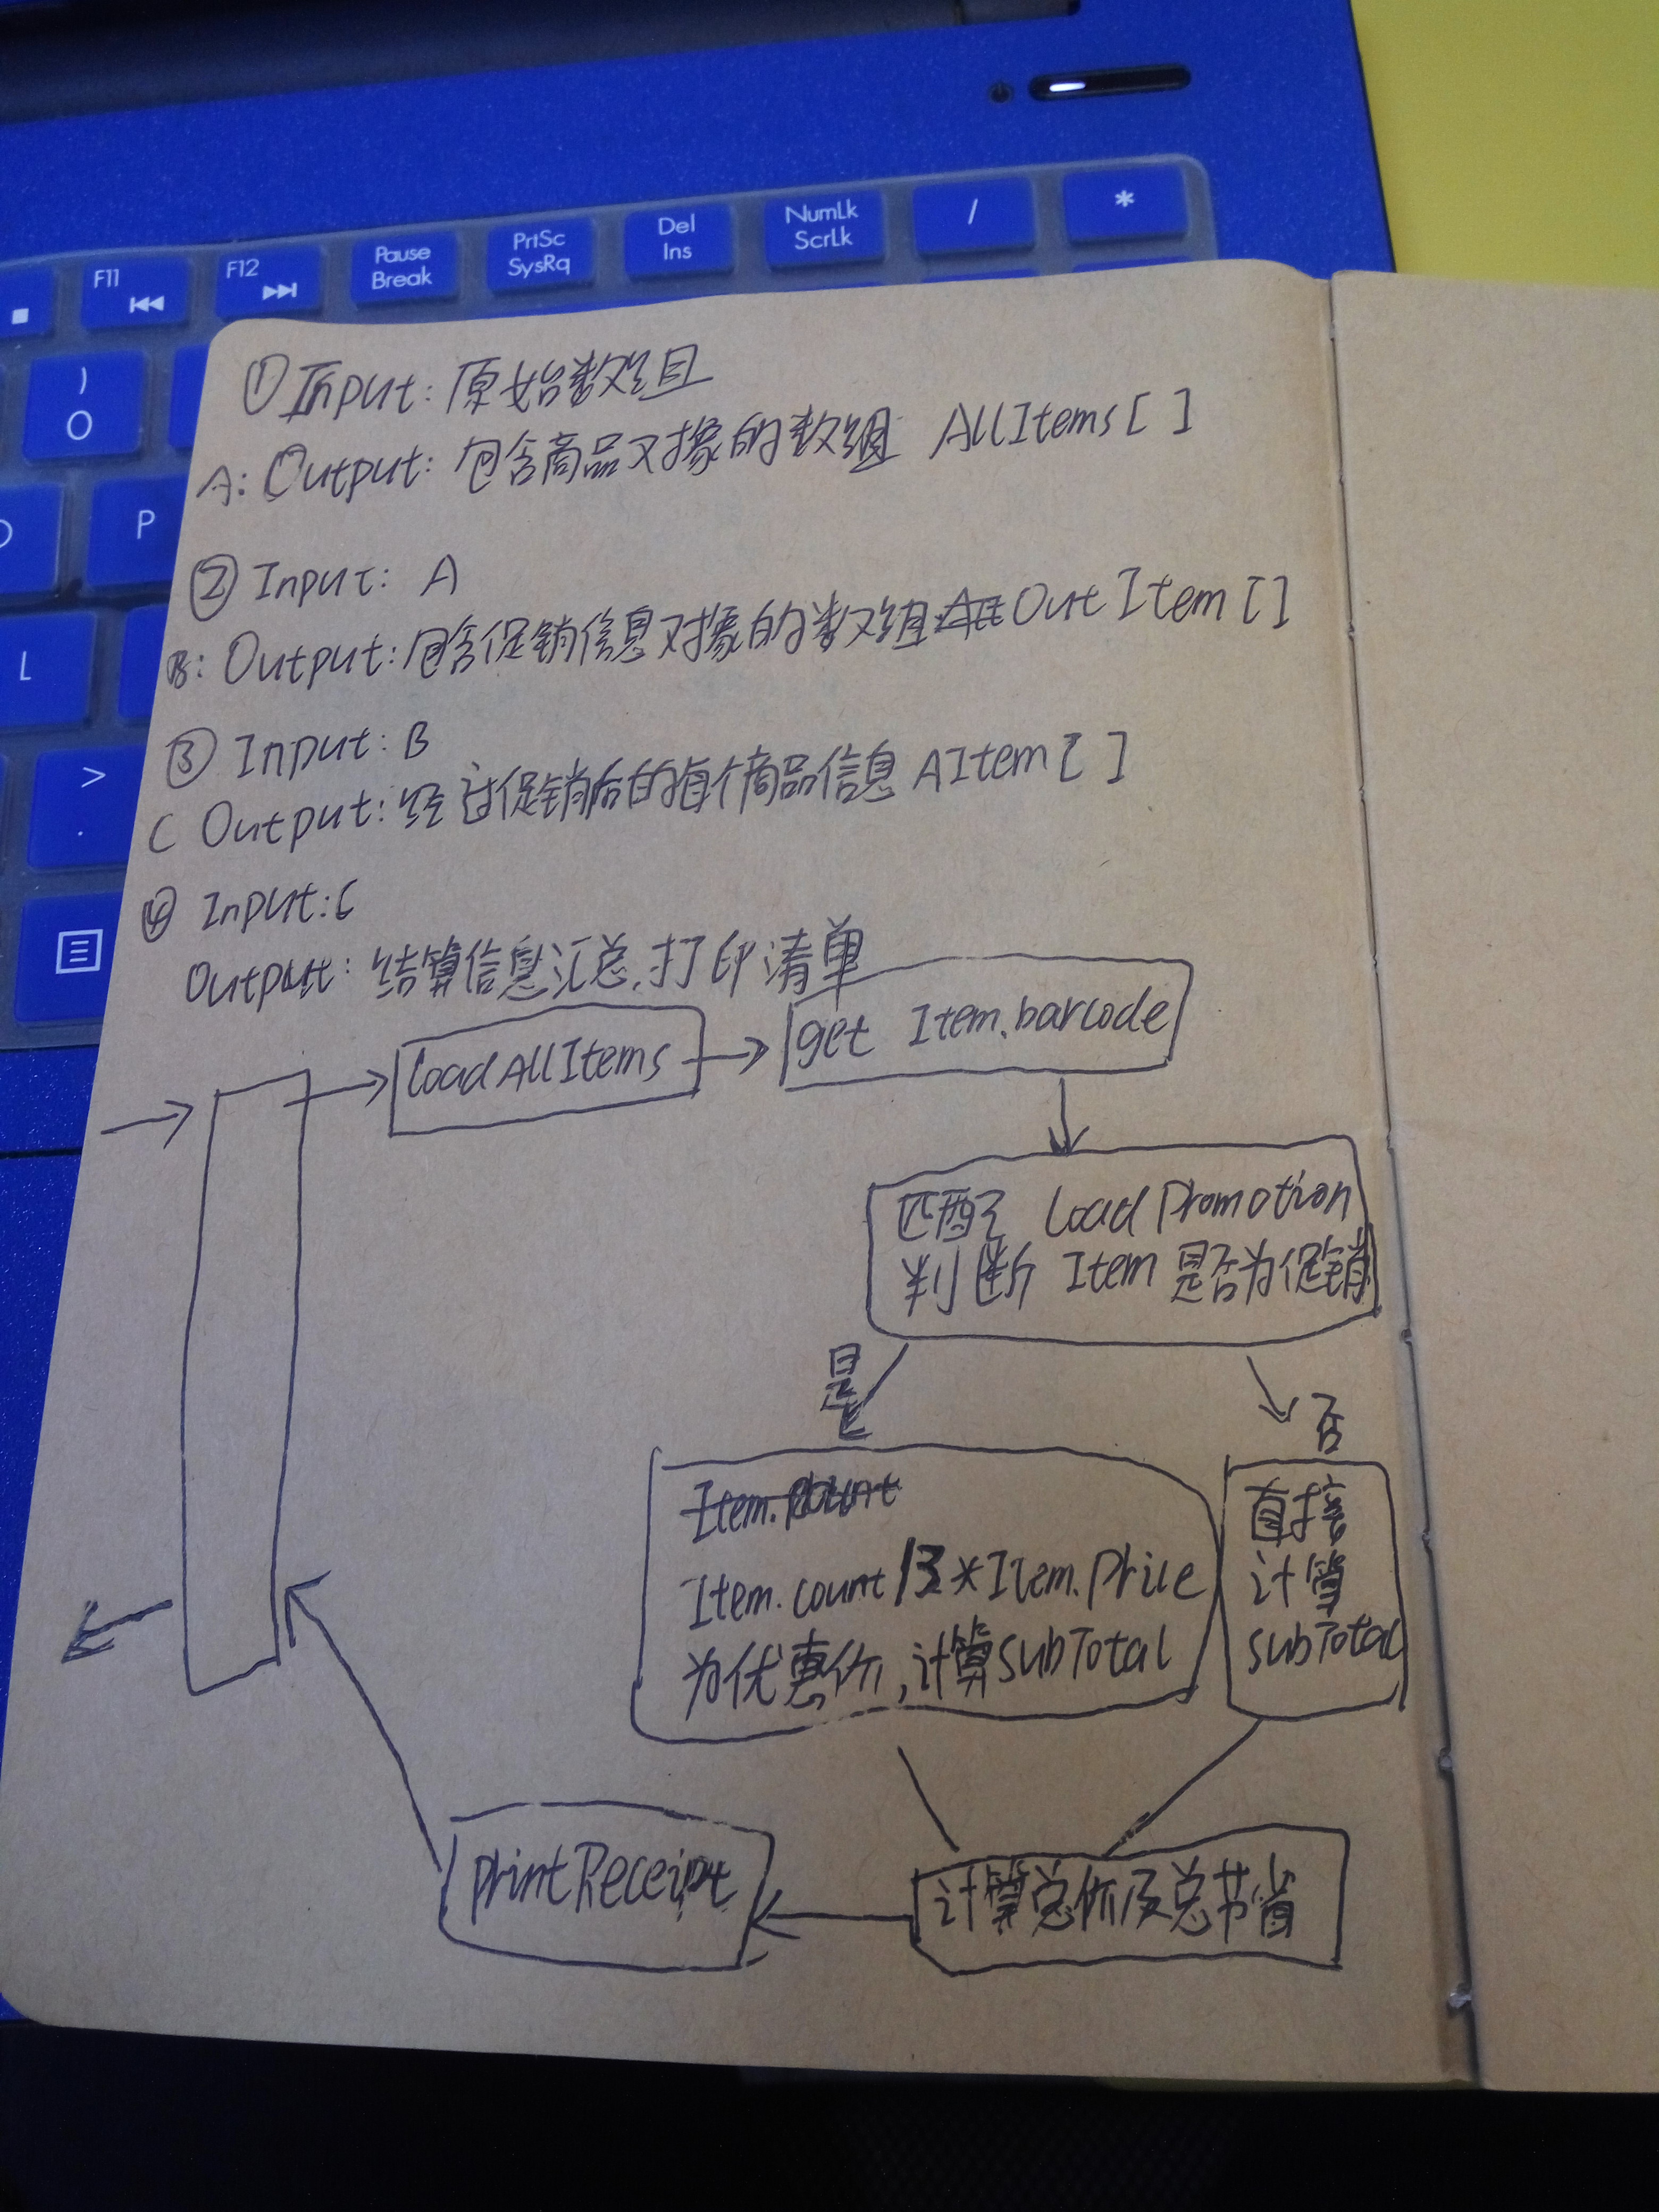 NumLk
ScrLk
/
*
Del
Ins
PrtSc
SysRq
Pause
Break
F12
F11
)
0
P
L
>
.
①Input: 原始数组
A: Output: 包含商品对象的数组 AllItems[ ]
② Input: A
B: Output: 包含促销信息对象的数组 OutItem[]
③ Input: B
C Output: 经过促销后的每个商品信息 AItem[ ]
④ Input: C
Output: 结算信息汇总,打印清单
loadAllItems
get Item.barcode
匹配 loadPromotion
判断 Item 是否为促销
是
否
Item.count
Item.count/3*Item.Price
为优惠价,计算subTotal
直接
计算
subTotal
printReceipt
计算总价及总节省